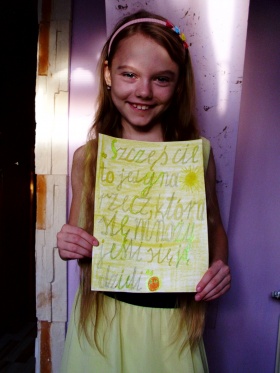 „Szczęście
to jedyna
rzecz, która
się mnoży
jeśli się ją
dzieli"